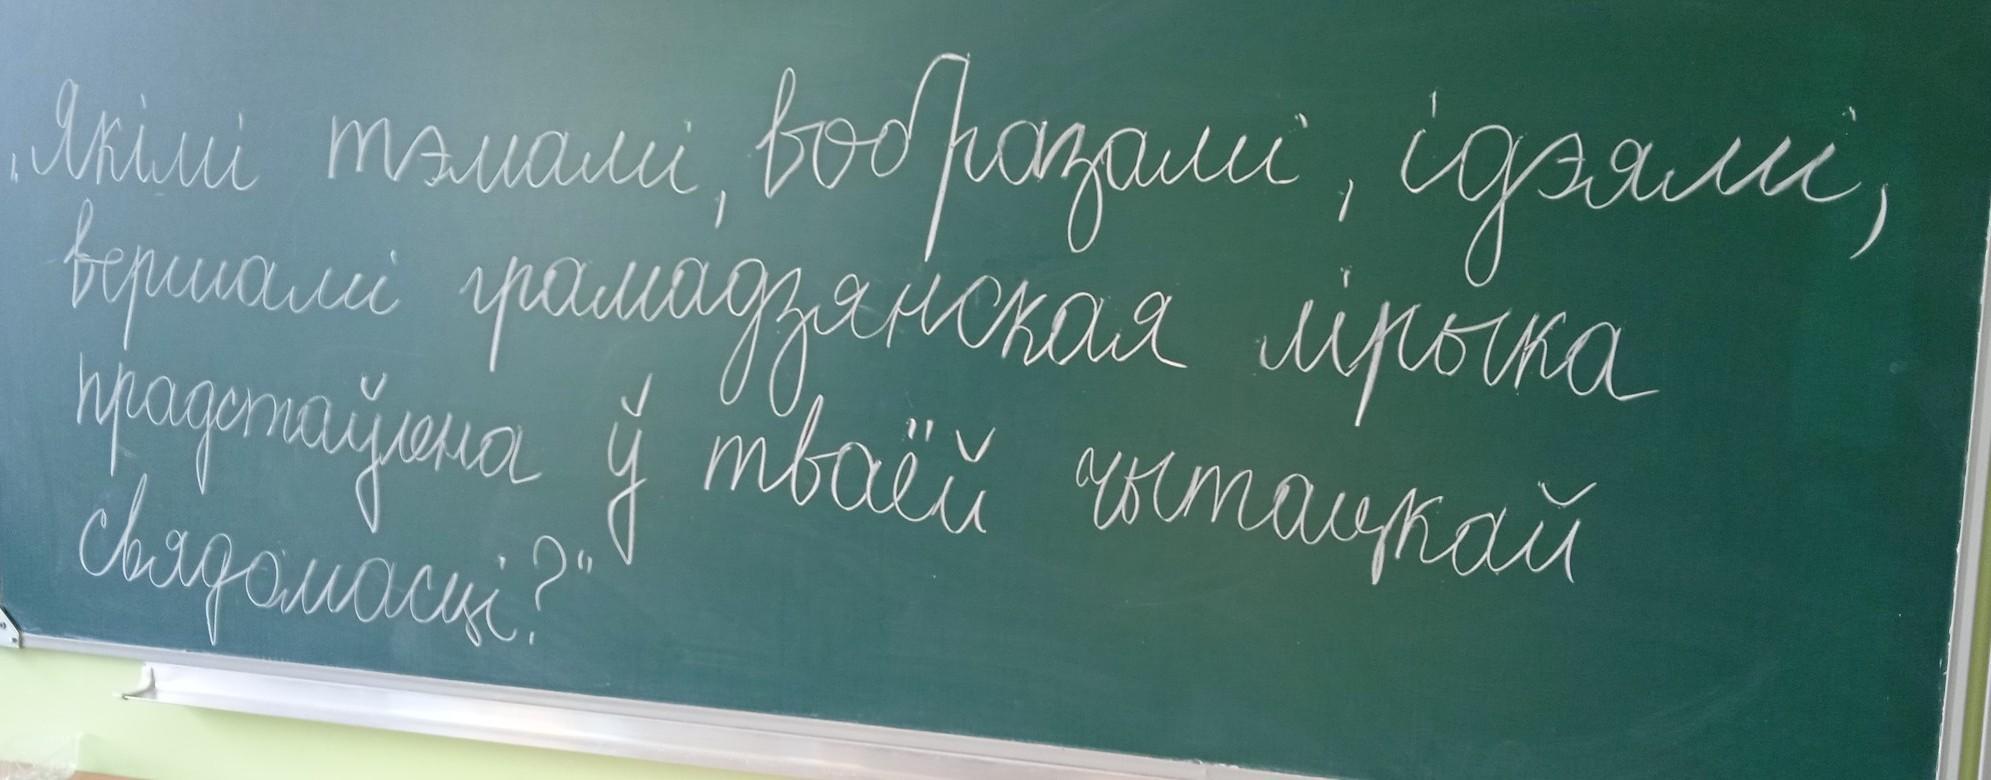 „Якімі тэмамі, вобразамі, ідэямі,
вершамі грамадзянская лірыка
прадстаўлена ў тваёй чытацкай
свядомасці?"